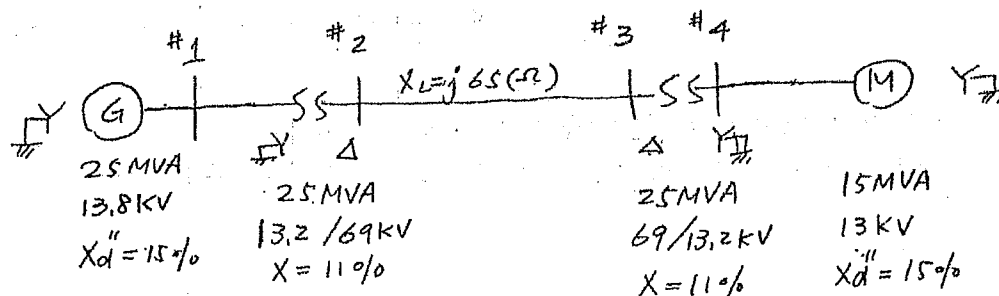 #1 #2 #3 #4
Y G X_L=j65(Ω) M Y
Y Δ Δ Y
25 MVA
13.8KV
Xd"=15%
25.MVA
13.2/69KV
X=11%
25MVA
69/13.2KV
X=11%
15MVA
13KV
Xd"=15%